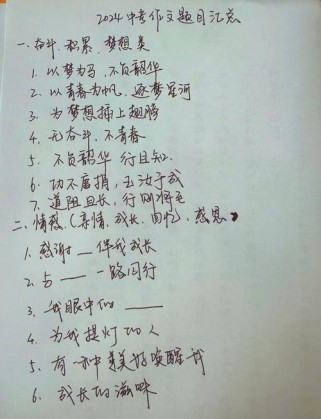 2024中考作文题目汇总
一、奋斗、积累、梦想类
1. 以梦为马,不负韶华
2. 以青春为帆,逐梦星河
3. 为梦想插上翅膀
4. 无奋斗,不青春
5. 不负韶华 行且知
6. 功不唐捐,玉汝于成
7. 道阻且长,行则将至
二、情感(亲情、成长、回忆)、感恩
1. 感谢__伴我成长
2. 与____一路同行
3. 我眼中的____
4. 为我提灯的人
5. 有一种美好唤醒我
6. 成长的滋味